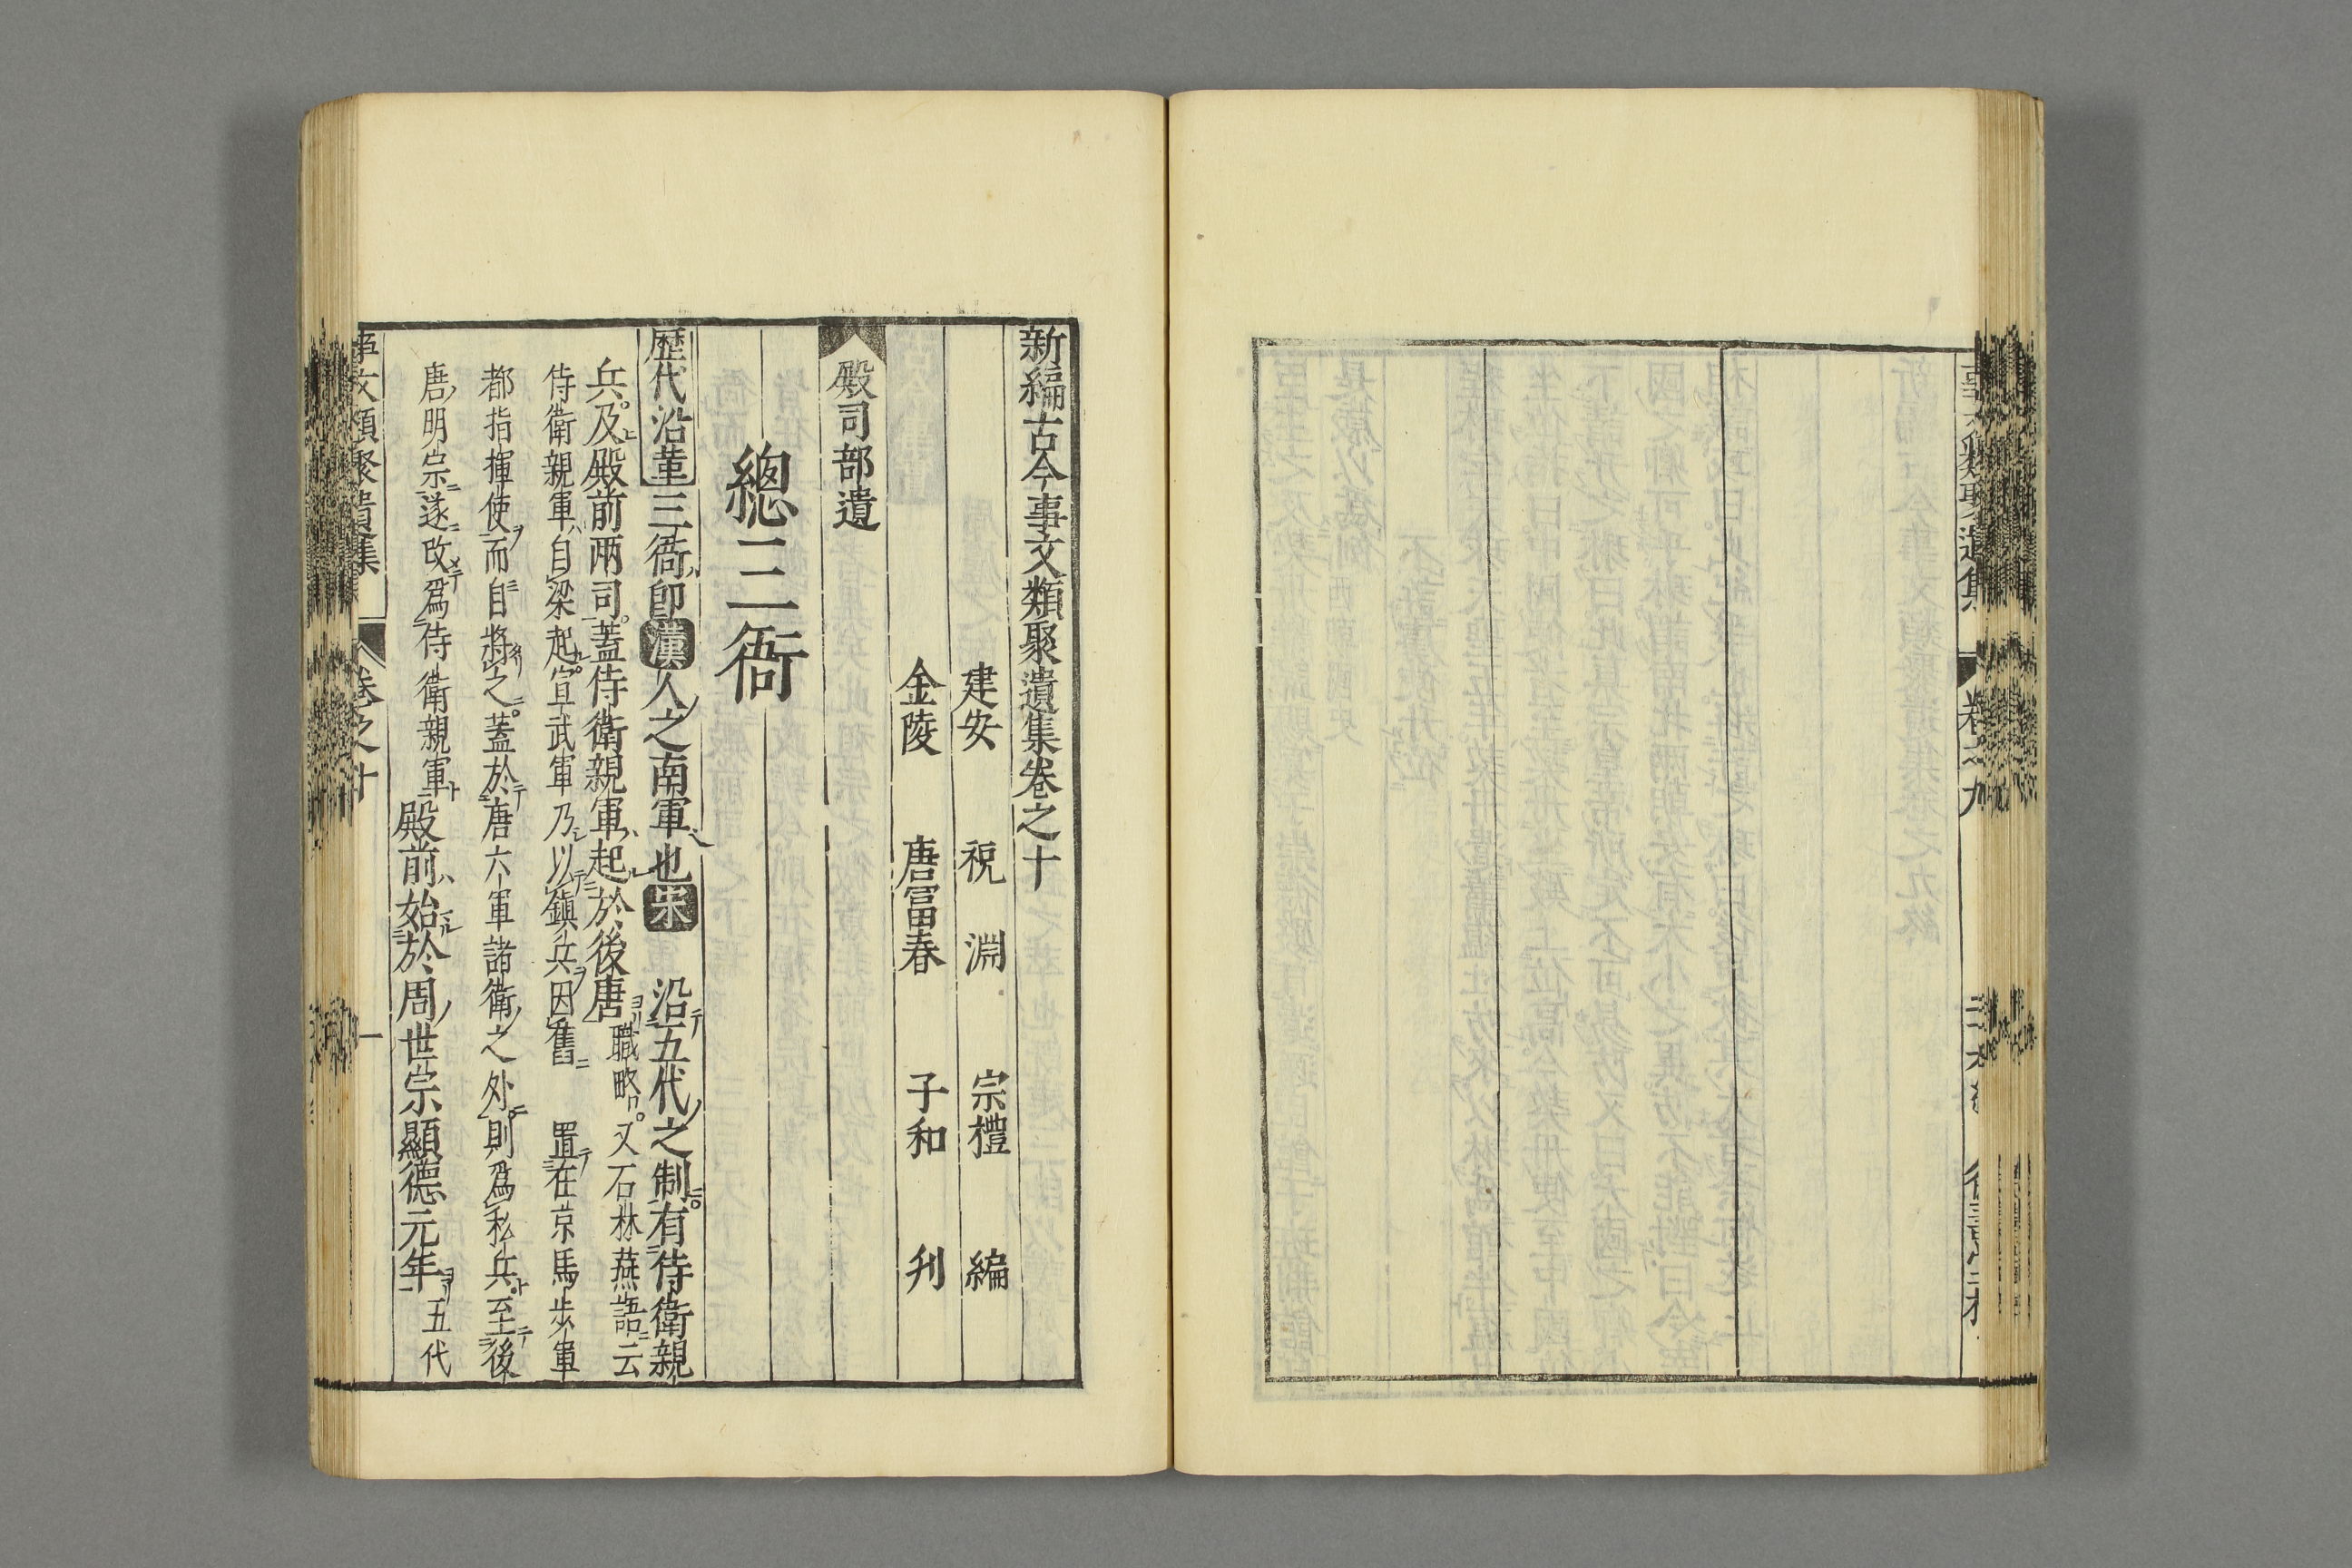 新編古今事文類聚遺集卷之十
建安 祝 淵 宗禮 編
金陵 唐冨春 子和 刋
殿司部遺
總三衙
歷代沿革三衙即漢人之南軍也宋 沿五代之制有侍衛親
兵及殿前兩司蓋侍衛親軍起於後唐職略又石林燕語云
侍衛親軍自梁起宣武軍乃以鎮兵因舊 置在京馬步軍
都指揮使而自將之蓋於唐六軍諸衛之外則爲私兵至後
唐明宗遂改爲侍衛親軍殿前始於周世宗顯德元年五代
事文類聚遺集 卷之十 一